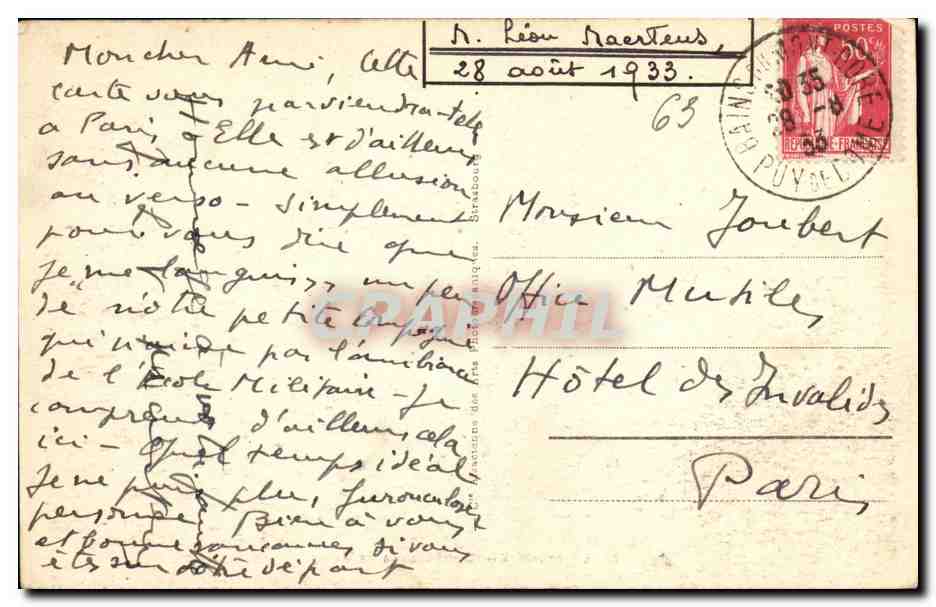 M. Léon Maertens,
28 août 1933.
63
POSTES
50c
REPUBLIQUE FRANÇAISE
BAINS DU MONT DORE
PUY DE DOME
20 35
28 -8
33
Mon cher Ami, Cette
carte vous parviendra-t-elle
a Paris - Elle est d'ailleurs
sans aucune allusion
au verso - simplement
pour vous dire que
je me languis un peu
de notre petite
qui par l'ambiance
de l'École Militaire - Je
comprends d'ailleurs cela
ici - Quel temps idéal,
Je ne puis plus,
personne Bien à vous
et bonne si vous
êtes sur votre départ
Cie Alsacienne des Arts Photomécaniques, Strasbourg
Monsieur Joubert
Office Mutilés
Hôtel des Invalides
Paris
CPAPHIL